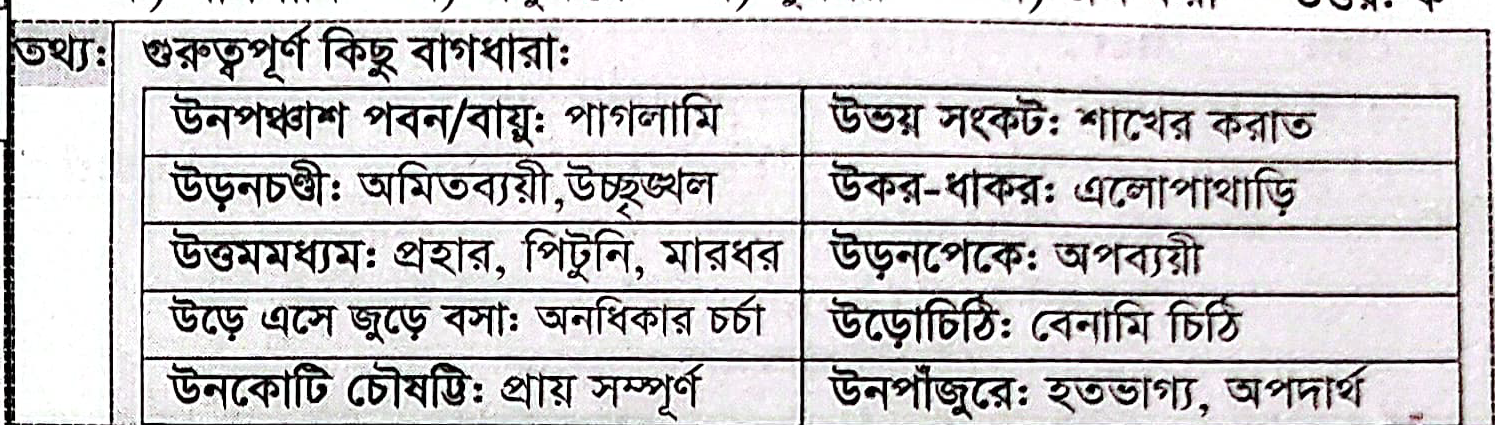 তথ্য: গুরুত্বপূর্ণ কিছু বাগধারা:
উনপঞ্চাশ পবন/বায়ু: পাগলামি উভয় সংকট: শাখের করাত
উড়নচণ্ডী: অমিতব্যয়ী,উচ্ছৃঙ্খল উকর-ধাকর: এলোপাথাড়ি
উত্তমমধ্যম: প্রহার, পিটুনি, মারধর উড়নপেকে: অপব্যয়ী
উড়ে এসে জুড়ে বসা: অনধিকার চর্চা উড়োচিঠি: বেনামি চিঠি
উনকোটি চৌষট্টি: প্রায় সম্পূর্ণ উনপাঁজুরে: হতভাগ্য, অপদার্থ